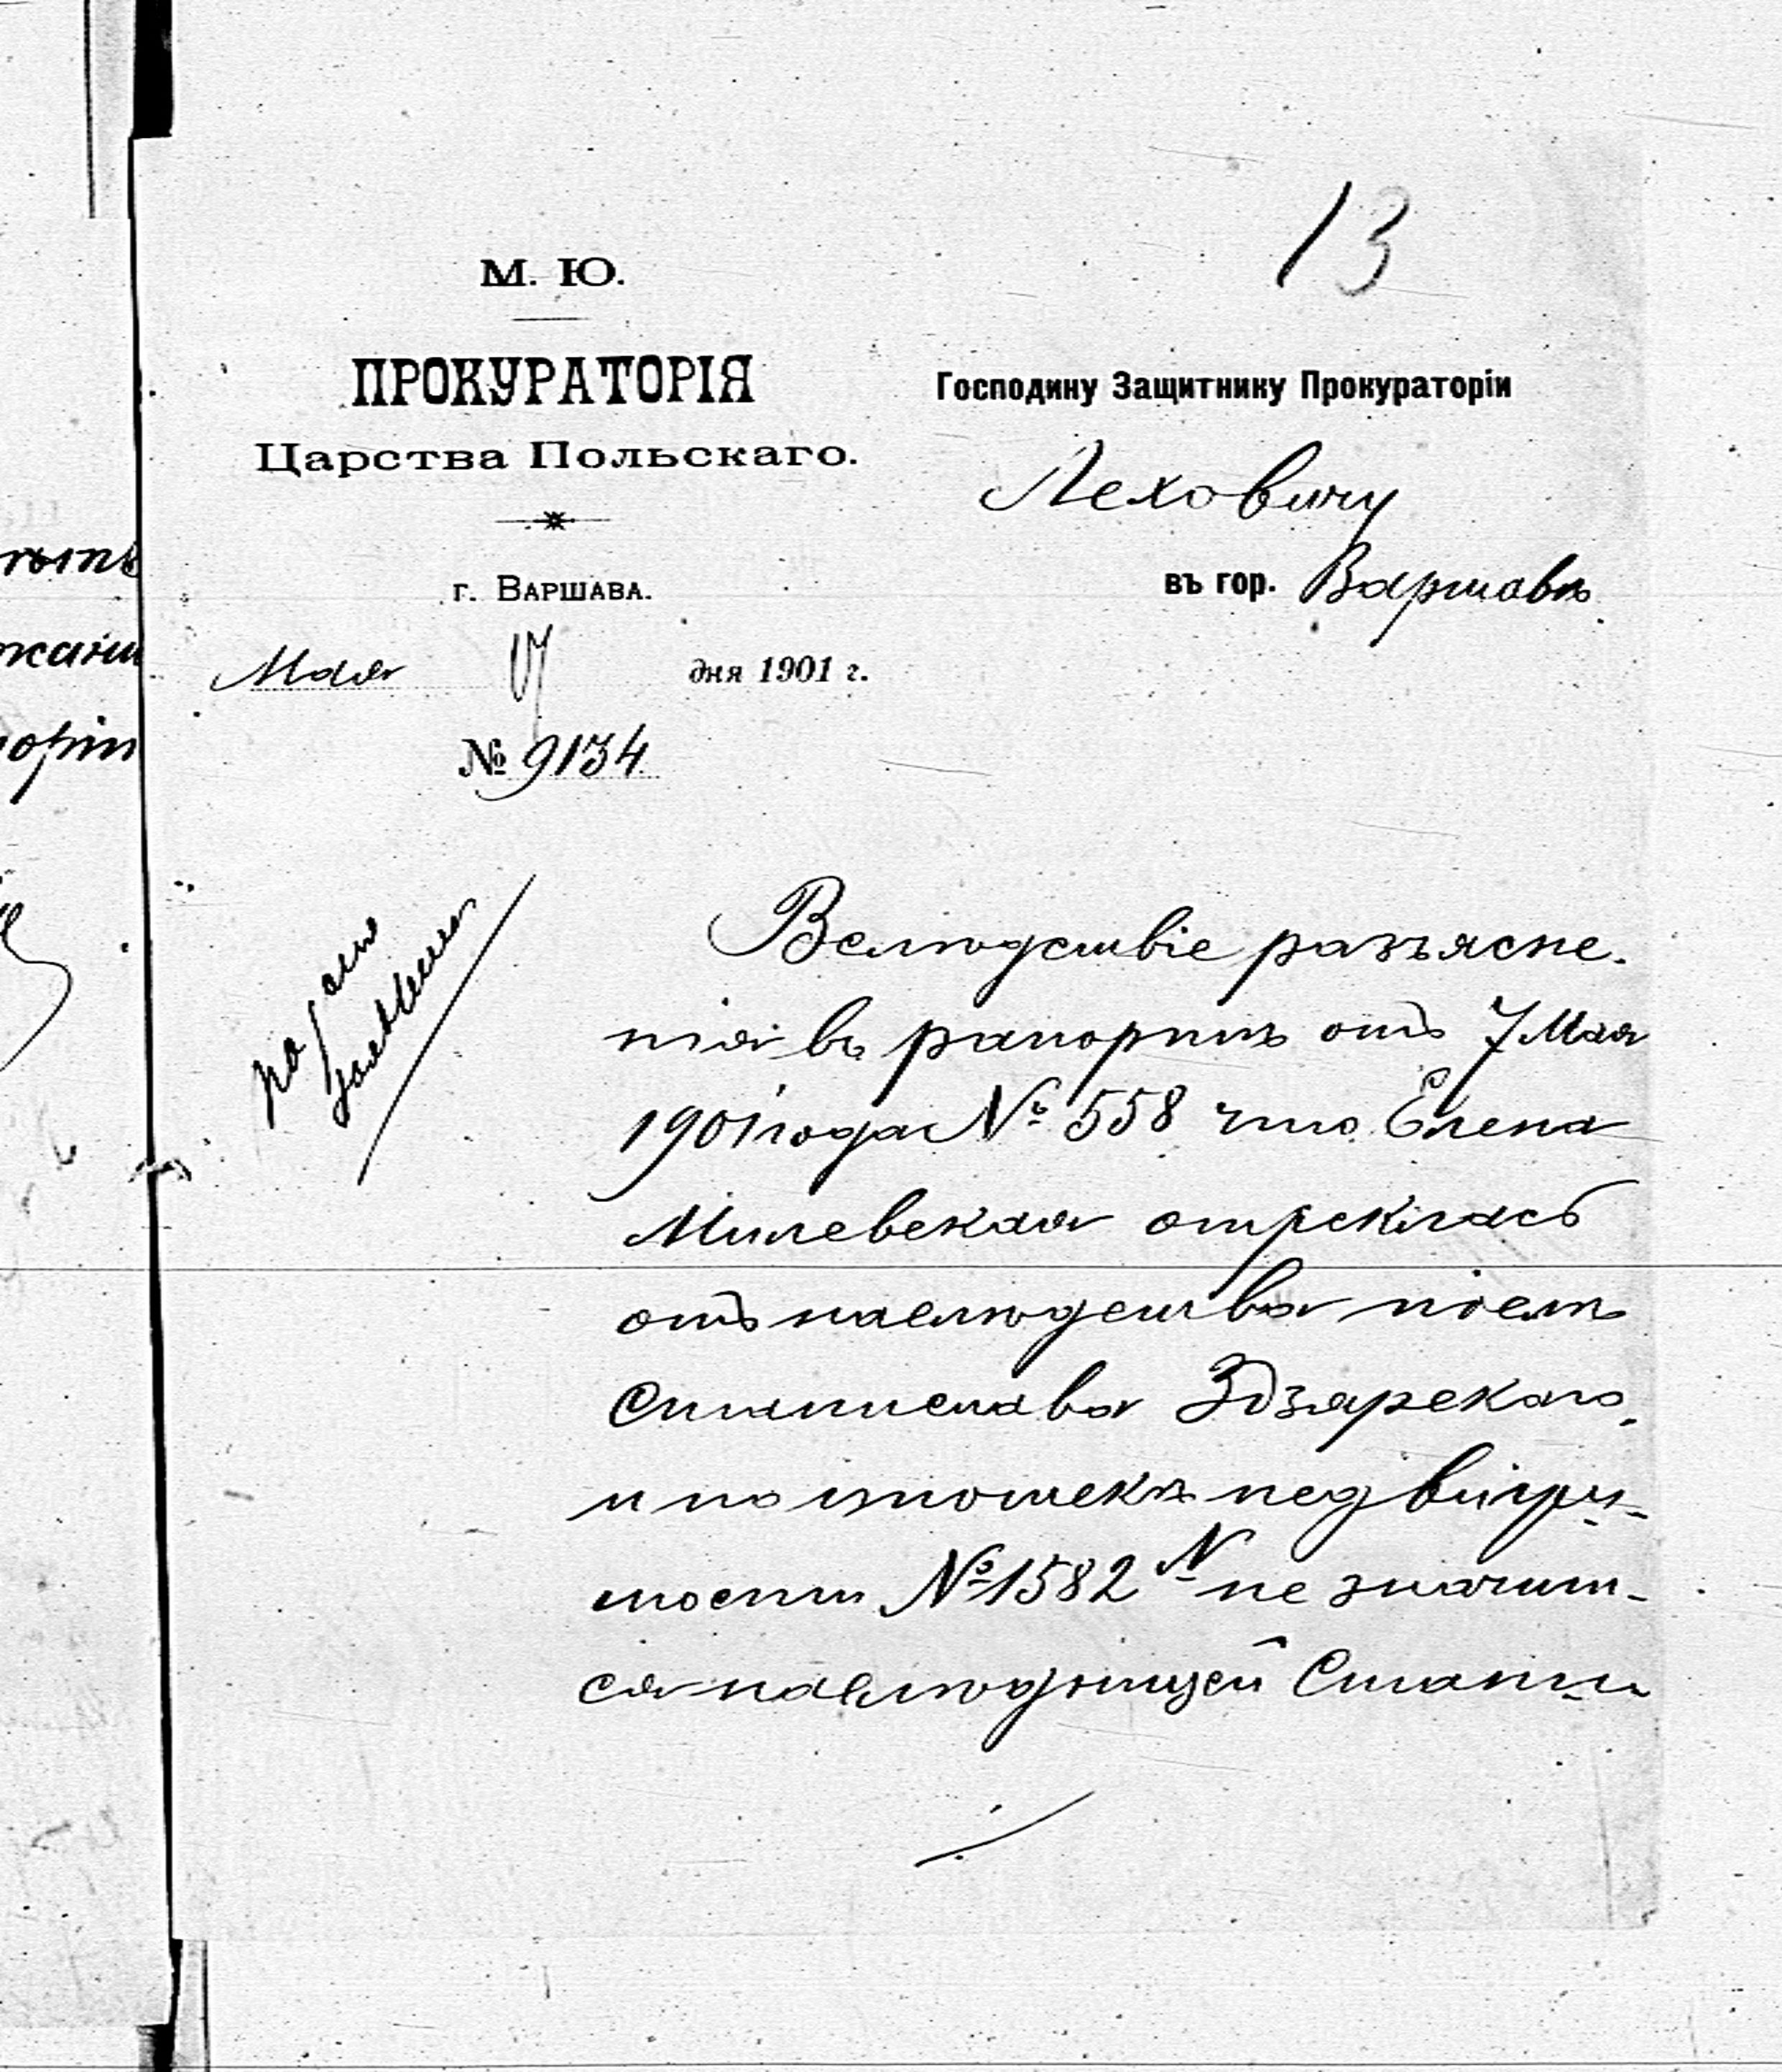 13
М. Ю.
ПРОКУРАТОРІЯ
Царства Польскаго.
г. Варшава.
Мая 17 дня 1901 г.
№ 9134
Господину Защитнику Прокураторіи
Леховичу
въ гор. Варшавѣ
Вслѣдствіе разъясне-
нія въ рапортѣ отъ 7 Мая
1901 года № 558 что Елена
Милевская отреклась
отъ наслѣдства послѣ
Станислава Здзярскаго,
и по ипотекѣ недвижи-
мости № 1582 N не значит-
ся наслѣдницей Стани